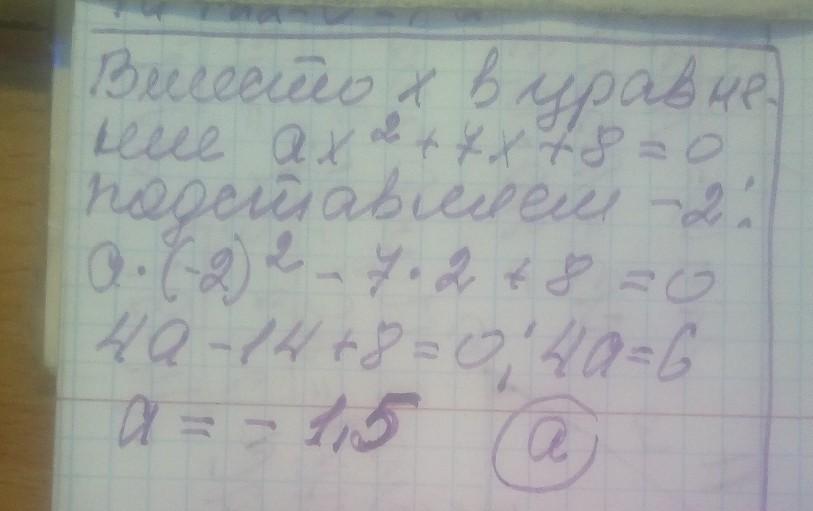 Вместо x в уравне-
ние ax² + 7x + 8 = 0
подставляем -2:
a·(-2)² - 7·2 + 8 = 0
4a - 14 + 8 = 0; 4a = 6
a = - 1,5 a